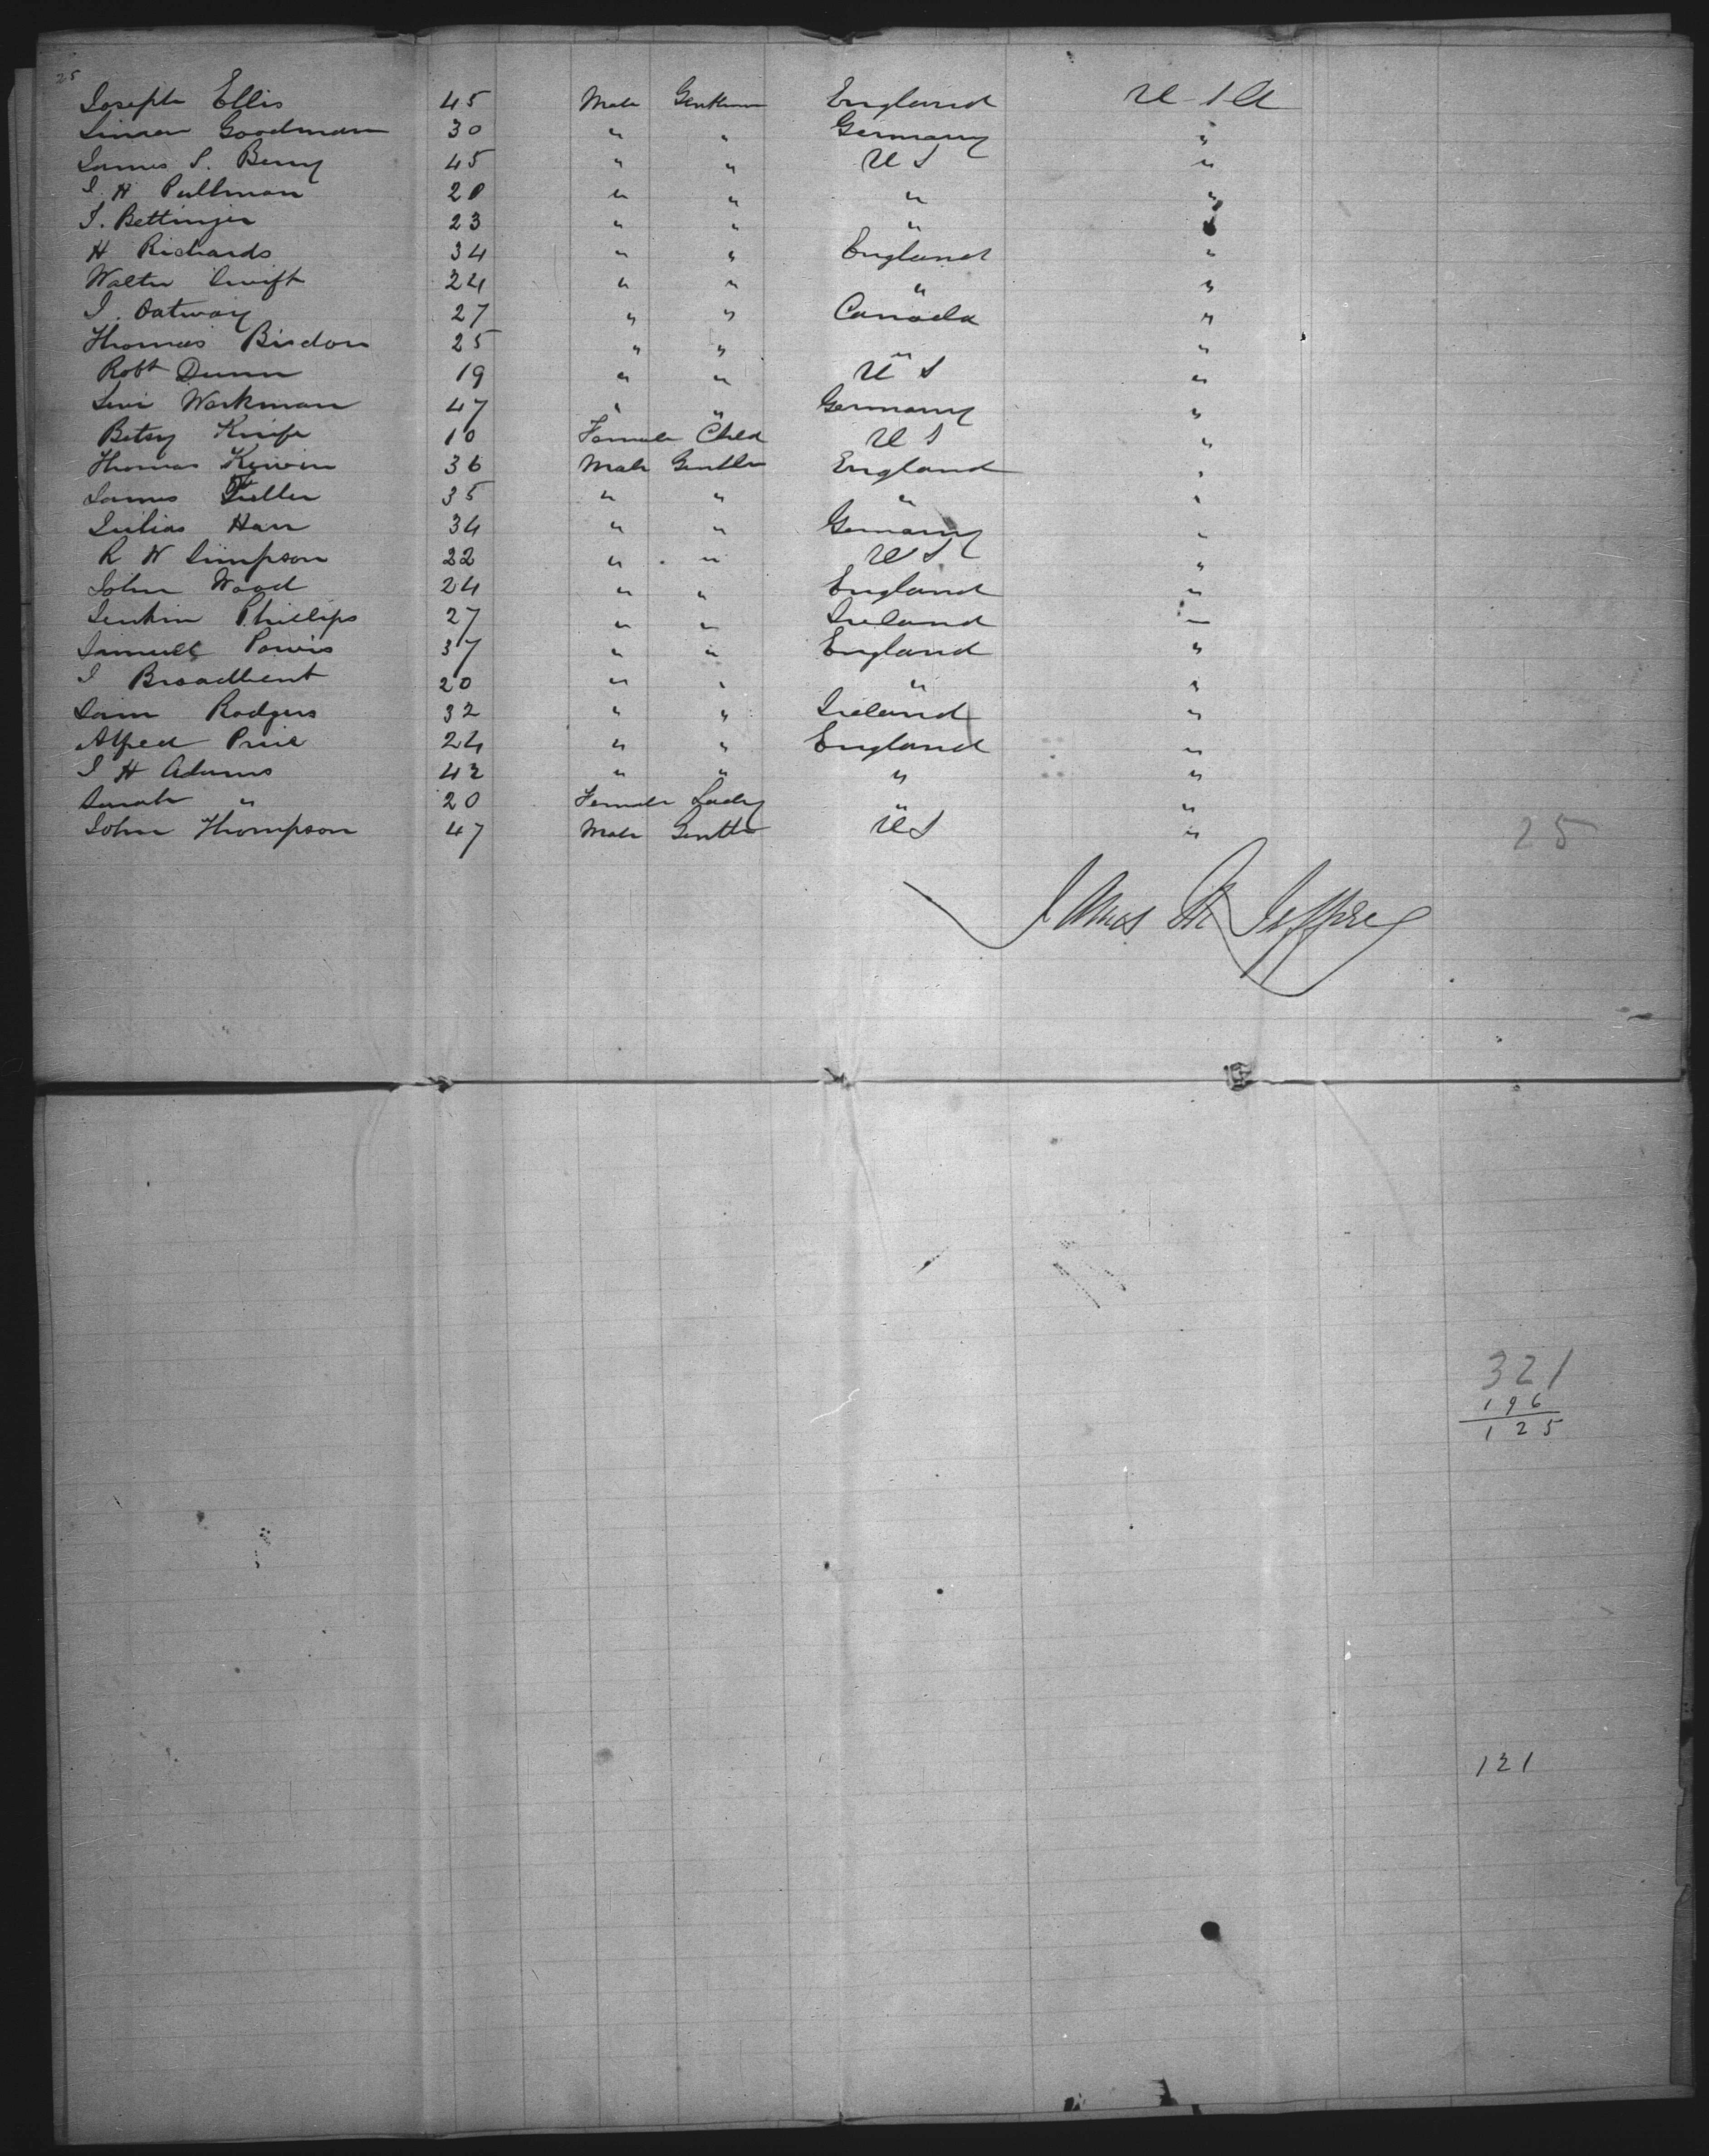 25
Joseph Ellis 45 Male Gentleman England U S A
Simon Goodman 30 " " Germany "
James S. Berry 45 " " U S "
J. H Pullman 20 " " " "
J. Bettinger 23 " " "
H Richards 34 " " England "
Walter Swift 24 " " " "
J. Oatway 27 " " Canada "
Thomas Birdon 25 " " " "
Robt Dunn 19 " " U S "
Levi Workman 47 " " Germany "
Betsy Knife 10 Female Child U S "
Thomas Kerwin 36 Male Gentln England "
James Fuller 35 " " " "
Julius Harr 34 " " Germany "
R W Simpson 22 " " U S "
John Wood 24 " " England "
Jenkin Phillips 27 " " Ireland "
Samuel Powis 37 " " England "
J Broadbent 20 " " " "
Sam Rodgers 32 " " Ireland "
Alfred Price 24 " " England "
J H Adams 42 " " " "
Sarah " 20 Female Lady " "
John Thompson 47 Male Gentln U S "
25
James W Jeffrey
321
196
125
121